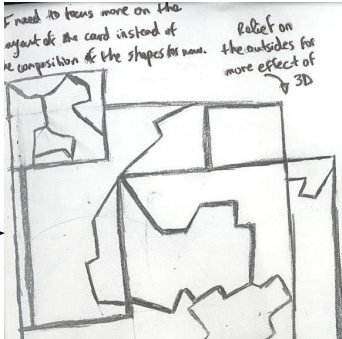 I need to focus more on the
layout of the card instead of
the composition of the shapes for now.
Relief on
the outsides for
more effect of
3D